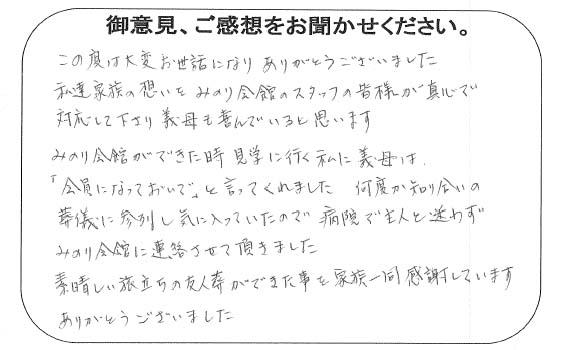 御意見、ご感想をお聞かせください。
この度は大変お世話になり ありがとうございました
私達家族の想いを みのり会館のスタッフの皆様が真心で
対応して下さり 義母も喜んでいると思います
みのり会館ができた時 見学に行く私に義母は、
「会員になっておいで」と言ってくれました 何度か知り合いの
葬儀に参列し気に入っていたので 病院で主人と迷わず
みのり会館に連絡させて頂きました
素晴しい旅立ちの友人葬ができた事を家族一同感謝しています
ありがとうございました